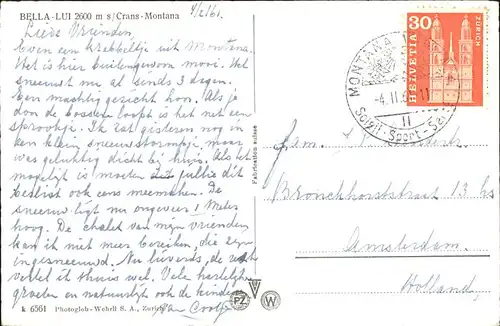 BELLA-LUI 2600 m s/Crans-Montana
4/2/61.
Lieve Vrienden,
Even een krabbeltje uit Montana.
Het is hier buitengewoon mooi. Het
sneeuwt nu al sinds 3 dagen.
Een machtig gezicht hoor. Als je
door de bossen loopt is het net een
sprookje. Ik zat gisteren nog in
een klein sneeuwstormpje maar
was gelukkig dicht bij huis. Als het
mogelijk is moeten jullie dit
beslist ook eens meemaken. De
sneeuw ligt nu ongeveer 1 Meter
hoog. De chalet van mijn vrienden
kan ik niet meer bereiken, die zijn
ingesneeuwd. Nu lieverds, de rest
vertel ik thuis wel. Vele hartelijke
groeten en natuurlijk ook de kinderen
van
k 6561 Photoglob-Wehrli S. A., Zurich
Fabrication suisse
PZ W
30
ZÜRICH
HELVETIA
MONTANA
-4.II.6 -11
11
Soleil-Sport-
Fam.
Bronckhorststraat 13 hs
Amsterdam
Holland,